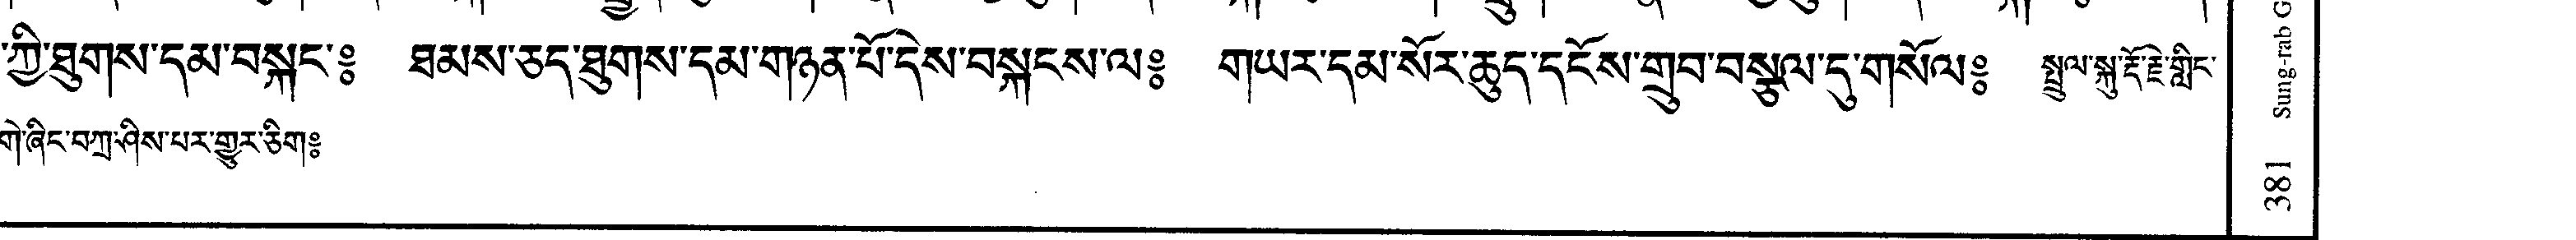 ཀྱི་ཐུགས་དམ་བསྐང་༔ ཐམས་ཅད་ཐུགས་དམ་གཉན་པོ་དེས་བསྐངས་ལ༔ གཡར་དམ་སོར་ཆུད་དངོས་གྲུབ་བསྩལ་དུ་གསོལ༔ སྤྲུལ་སྐུ་རྡོ་རྗེ་གླིང་
གེ་ཞིང་བཀྲ་ཤིས་པར་གྱུར་ཅིག༔
Sung-rab G
381